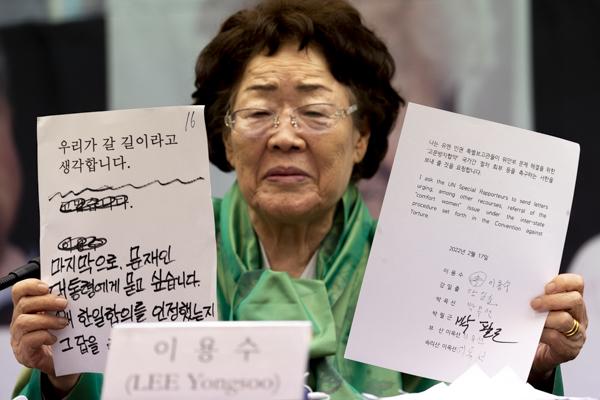 16
우리가 갈 길이라고
생각합니다.
마지막으로, 문재인
대통령에게 묻고 싶습니다.
왜 한일합의를 인정했는지
그 답을
나는 유엔 인권 특별보고관들이 위안부 문제 해결을 위한
'고문방지협약' 국가간 절차 회부 등을 촉구하는 서한을
보내 줄 것을 요청합니다.
I ask the UN Special Rapporteurs to send letters
urging, among other recourses, referral of the
"comfort women" issue under the inter-state
procedure set forth in the Convention against
Torture.
2022년 2월 17일
이 용 수 이용수
강 일 출 강일출
박 옥 선 박옥선
박 필 근 박필근
부 산 이옥선
속리산 이옥선
이 용 수
(LEE Yongsoo)